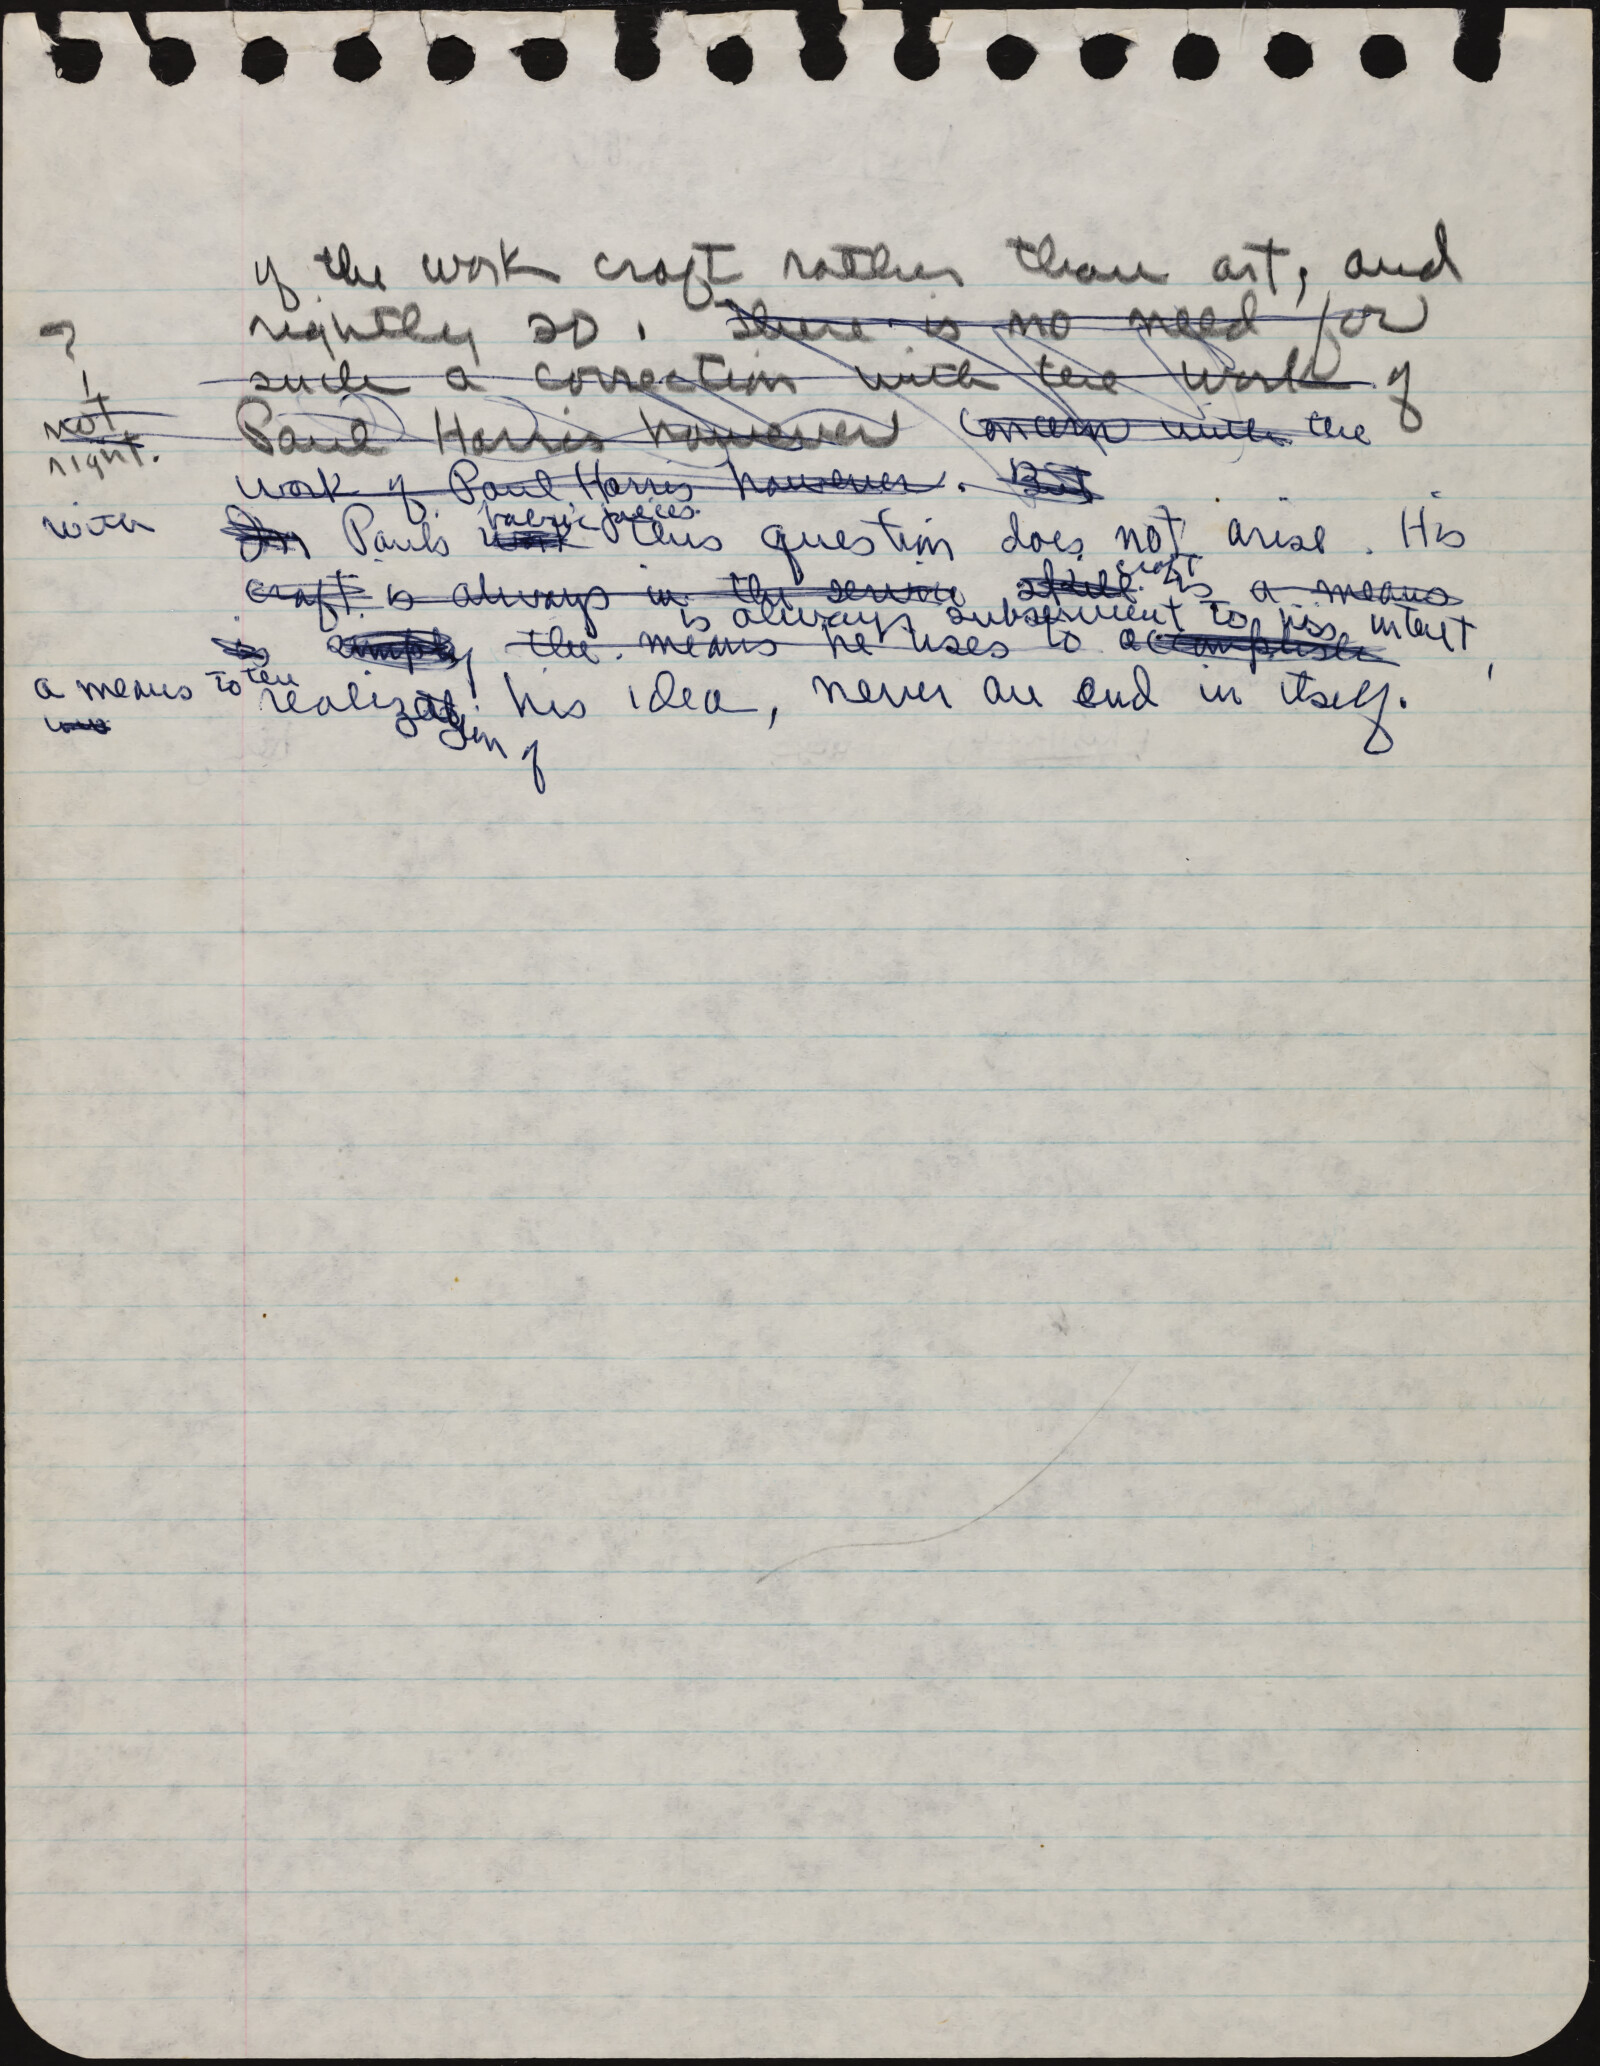 of the work craft rather than art, and
?
rightly so. There is no need for
such a correction with the work of
not
right.
Paul Harris however concern with the
work of Paul Harris however. But
with
In Paul's work this question does not arise. His
fabric pieces
craft is always in the service skill is a means
craft
is always subservient to his intent,
is simply the means he uses to accomplish
a means to the
realize his idea, never an end in itself.
ing of